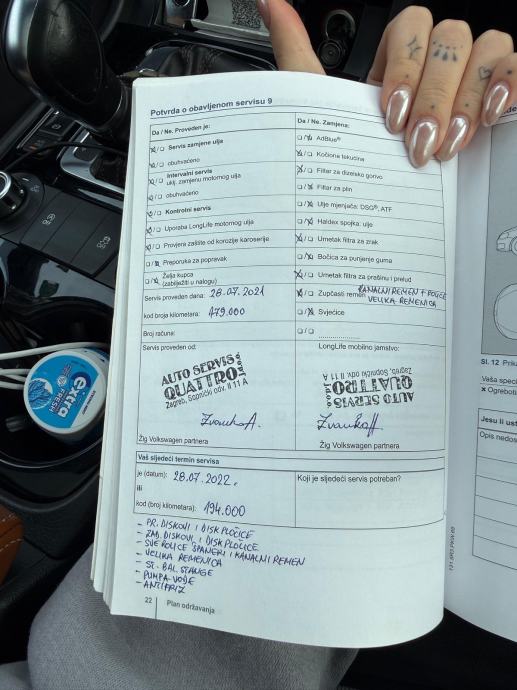 Potvrda o obavljenom servisu 9
Da / Ne. Proveden je:
Servis zamjene ulja
obuhvaćeno
Intervalni servis
uklj. zamjenu motornog ulja
obuhvaćeno
Kontrolni servis
Uporaba LongLife motornog ulja
Provjera zaštite od korozije karoserije
Preporuka za popravak
Želja kupca
(zabilježiti u nalogu)
Servis proveden dana: 28.07.2021
kod broja kilometara: 179.000
Broj računa:
Servis proveden od:
AUTO SERVIS
QUATTRO d.o.o.
Zagreb, Sopnički odv. II 11 A
Žig Volkswagen partnera
Da / Ne. Zamjena:
AdBlue®
Kočione tekućina
Filtar za dizelsko gorivo
Filtar za plin
Ulje mjenjača: DSG®, ATF
Haldex spojka: ulje
Umetak filtra za zrak
Bočica za punjenje guma
Umetak filtra za prašinu i pelud
Zupčasti remen KANALNI REMEN + ROLICE
VELIKA REMENICA
Svjećice
LongLife mobilno jamstvo:
AUTO SERVIS
QUATTRO d.o.o.
Zagreb, Sopnički odv. II 11 A
Žig Volkswagen partnera
Vaš sljedeći termin servisa
je (datum): 28.07.2022.
ili
kod (broj kilometara): 194.000
Koji je sljedeći servis potreban?
- PR. DISKOVI I DISK PLOČICE
- ZAD. DISKOVI I DISK PLOČICE
- SVE ROLICE ŠPANERI I KANALNI REMEN
- VELIKA REMENICA
- ST. BAL. STANGE
- PUMPA VODE
- ANTIFRIZ
22 Plan održavanja
Sl. 12
Vaša speci
x Ogreboti
Jesu li ust
Opis nedos
extra
FRESH